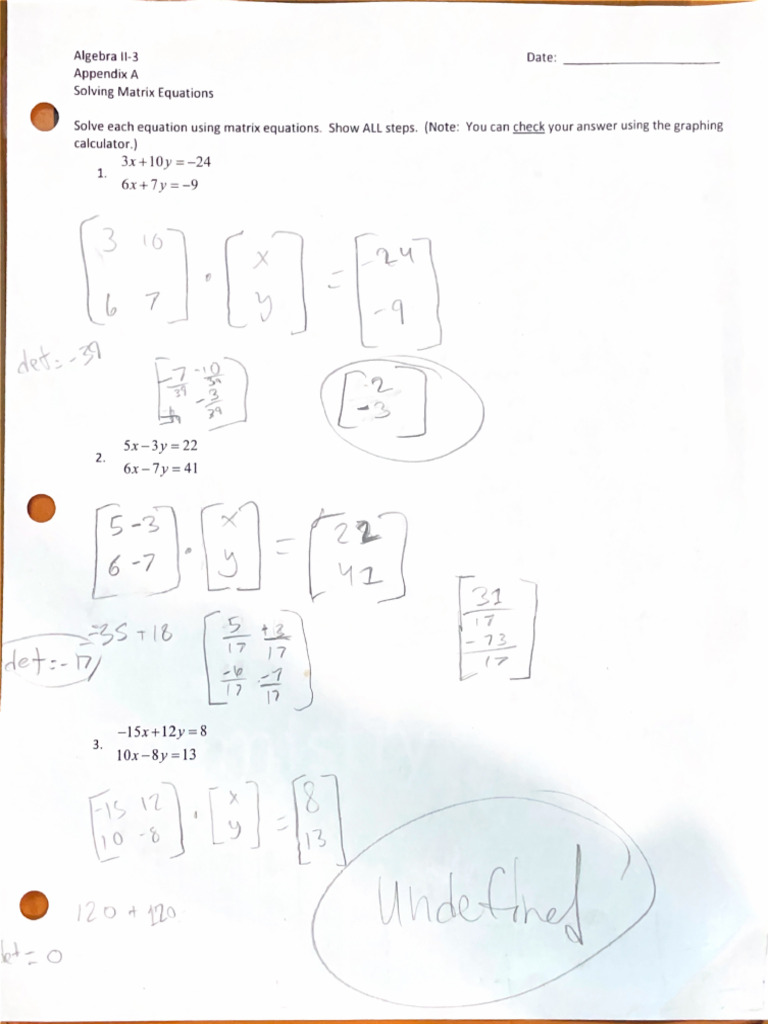 Algebra II-3 Date: ____________________
Appendix A
Solving Matrix Equations
Solve each equation using matrix equations. Show ALL steps. (Note: You can check your answer using the graphing
calculator.)
1.
3x+10y=−24
6x+7y=−9
[3 10] · [x] = [-24]
[6 7] [y] [-9]
det=-39
-7/39 -10/39
-3/39
[-2]
[-3]
2.
5x−3y=22
6x−7y=41
[5 -3] · [x] = [22]
[6 -7] [y] [41]
-35+18
det=-17
[5/17 +3/17]
[-6/17 -7/17]
[31/17]
[-73/17]
3.
−15x+12y=8
10x−8y=13
[-15 12] · [x] = [8]
[10 -8] [y] [13]
undefined
120+120
det=0